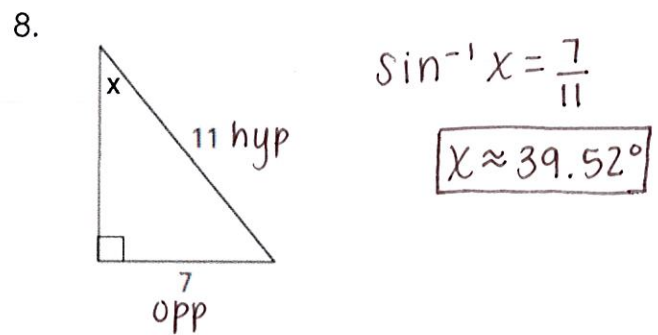 8.
x
11 hyp
7
opp
sin⁻¹ x = 7/11
x ≈ 39.52°